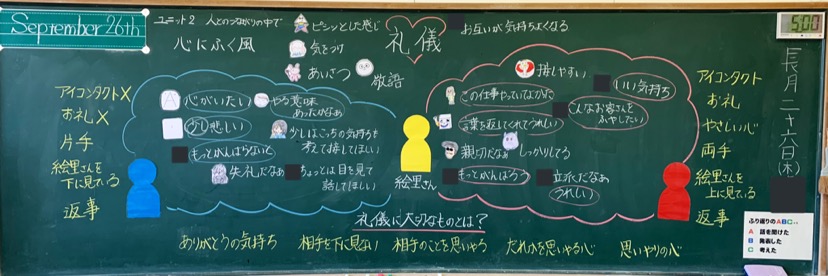 September 26th
ユニット2 人とのつながりの中で
心にふく風
ピシッとした感じ
気をつけ
あいさつ
敬語
礼儀
お互いが気持ちよくなる
5:00
長月二十六日(木)
アイコンタクト×
お礼×
片手
絵里さんを
下に見ている
返事
心がいたい
やる意味
あったかなぁ
少し悲しい
少しはこっちの気持ちも
考えて接してほしい
もっとがんばらないと
失礼だなぁ
ちょっとは目を見て
話してほしい
絵里さん
接しやすい
いい気持ち
この仕事やっていてよかった
こんなお客さんを
ふやしたい
言葉を返してくれてうれしい
親切だなぁ
しっかりしてる
もっとがんばろう
立派だなぁ
うれしい
アイコンタクト
お礼
やさしい心
両手
絵里さんを
上に見ている
返事
礼儀に大切なものとは?
ありがとうの気持ち
相手を下に見ない
相手のことを思いやる
だれかを思いやる心
思いやりの心
ふり返りのABC
A 話を聞けた
B 発表した
C 考えた